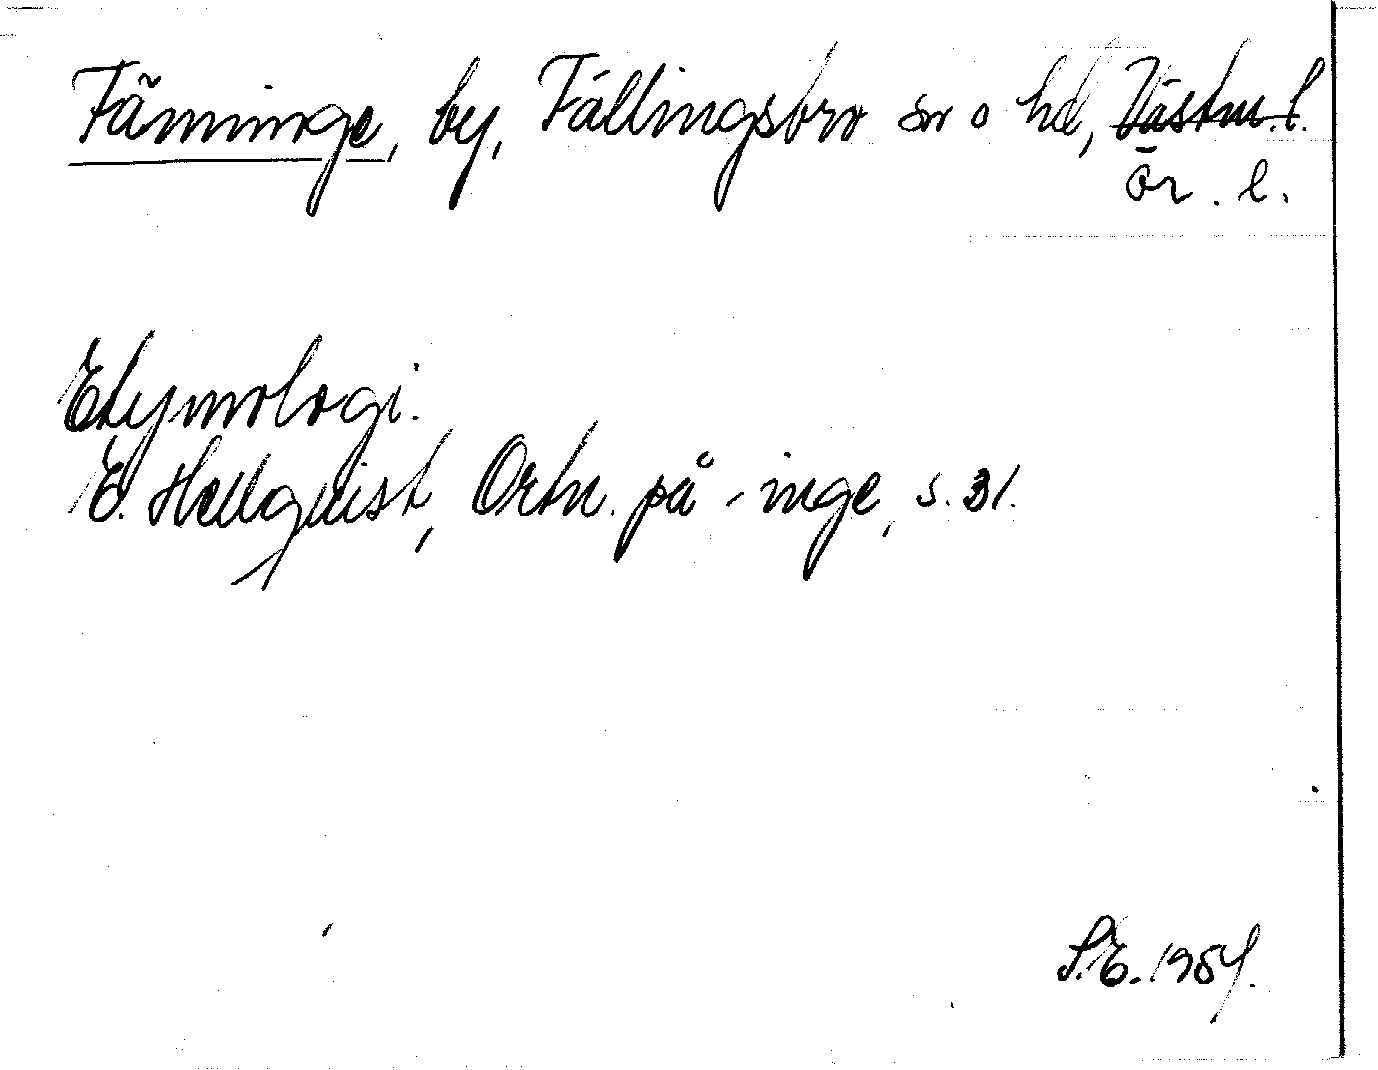 Fänninge, by, Fellingsbro sn o hd, Västm. l.
Ör. l.
Etymologi.
E. Hellquist, Ortn. på -inge, s. 31.
S.E. 1954.